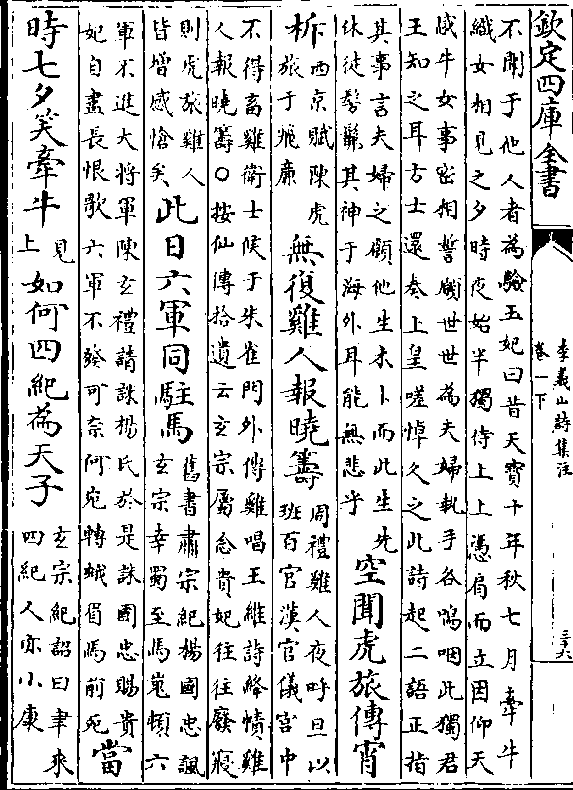 欽定四庫全書
李義山詩集注
卷一下
三六
不聞于他人者為驗玉妃曰昔天寶十年秋七月牽牛
織女相見之夕時夜始半獨侍上上憑肩而立因仰天
感牛女事密相誓願世世為夫婦執手各嗚咽此獨君
王知之耳方士還奏上皇嗟悼久之此詩起二語正指
其事言夫婦之願他生未卜而此生先
休徒髣髴其神于海外耳能無悲乎
空聞虎旅傳宵
柝
西京賦陳虎
旅于飛廉
無復雞人報曉籌
周禮雞人夜呼旦以
班百官漢官儀宮中
不得畜雞衛士候于朱雀門外傳雞唱王維詩絳幘雞
人報曉籌○按仙傳拾遺云玄宗屬念貴妃往往廢寢
則虎旅雞人
皆增感愴矣
此日六軍同駐馬
舊書肅宗紀楊國忠諷
玄宗幸蜀至馬嵬頓六
軍不進大將軍陳玄禮請誅楊氏於是誅國忠賜貴
妃自盡長恨歌六軍不發可奈何宛轉蛾眉馬前死
當
時七夕笑牽牛
見
上
如何四紀為天子
玄宗紀詔曰聿來
四紀人亦小康